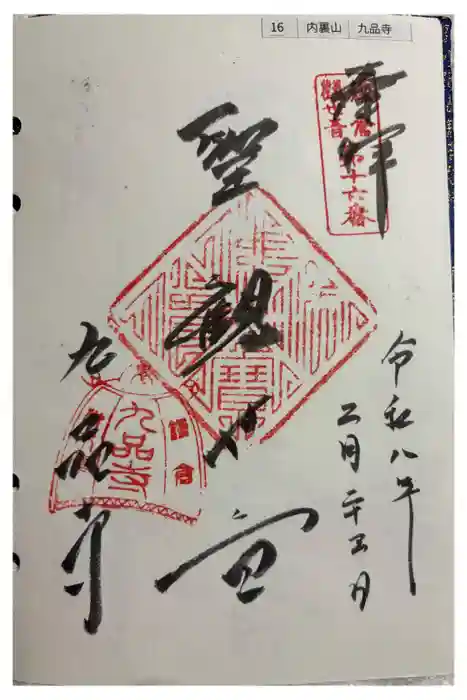 16 内裏山 九品寺
奉拝
鎌倉
第十六番
聖観世音
令和八年
二月二十五日
九品寺
九品寺
鎌倉